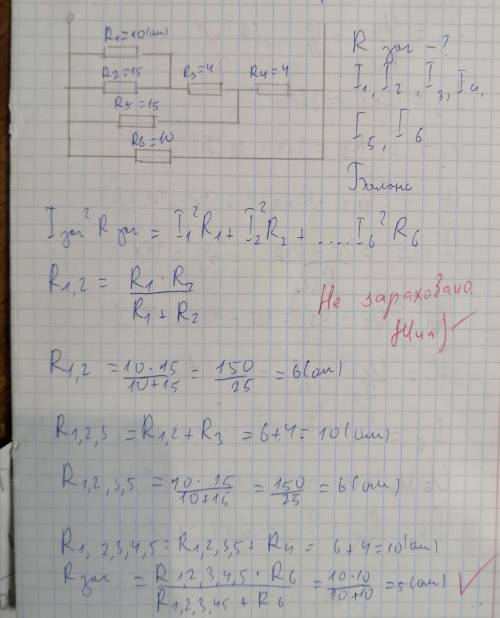 R₁=10(ом)
R₂=15
R₃=4
R₄=4
R₅=15
R₆=10
R заг - ?
I₁, I₂, I₃, I₄,
I₅, I₆
Баланс
Iзаг² R заг = I₁²R₁ + I₂²R₂ + ....I₆² R₆
R₁,₂ = (R₁ · R₂)/(R₁ + R₂)
Не зараховано.
R₁,₂ = (10 · 15)/(10+15) = 150/25 = 6(ом)
R₁,₂,₃ = R₁,₂ + R₃ = 6+4 = 10(ом)
R₁,₂,₃,₅ = (10 · 15)/(10+15) = 150/25 = 6(ом)
R₁,₂,₃,₄,₅ = R₁,₂,₃,₅ + R₄ = 6+4=10(ом)
R заг = (R₁,₂,₃,₄,₅ · R₆)/(R₁,₂,₃,₄₅ + R₆) = (10·10)/(10+10) = 5(ом)